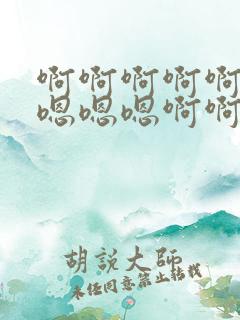 啊啊啊啊啊
嗯嗯嗯啊啊
胡說大師
未任同意禁止转载